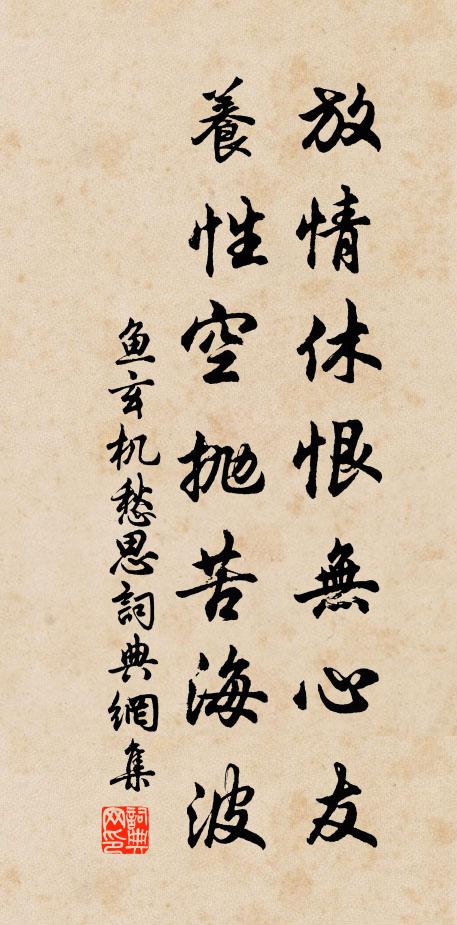 放情休恨無心友
養性空拋苦海波
鱼玄机愁思詞典網集
詞典网印